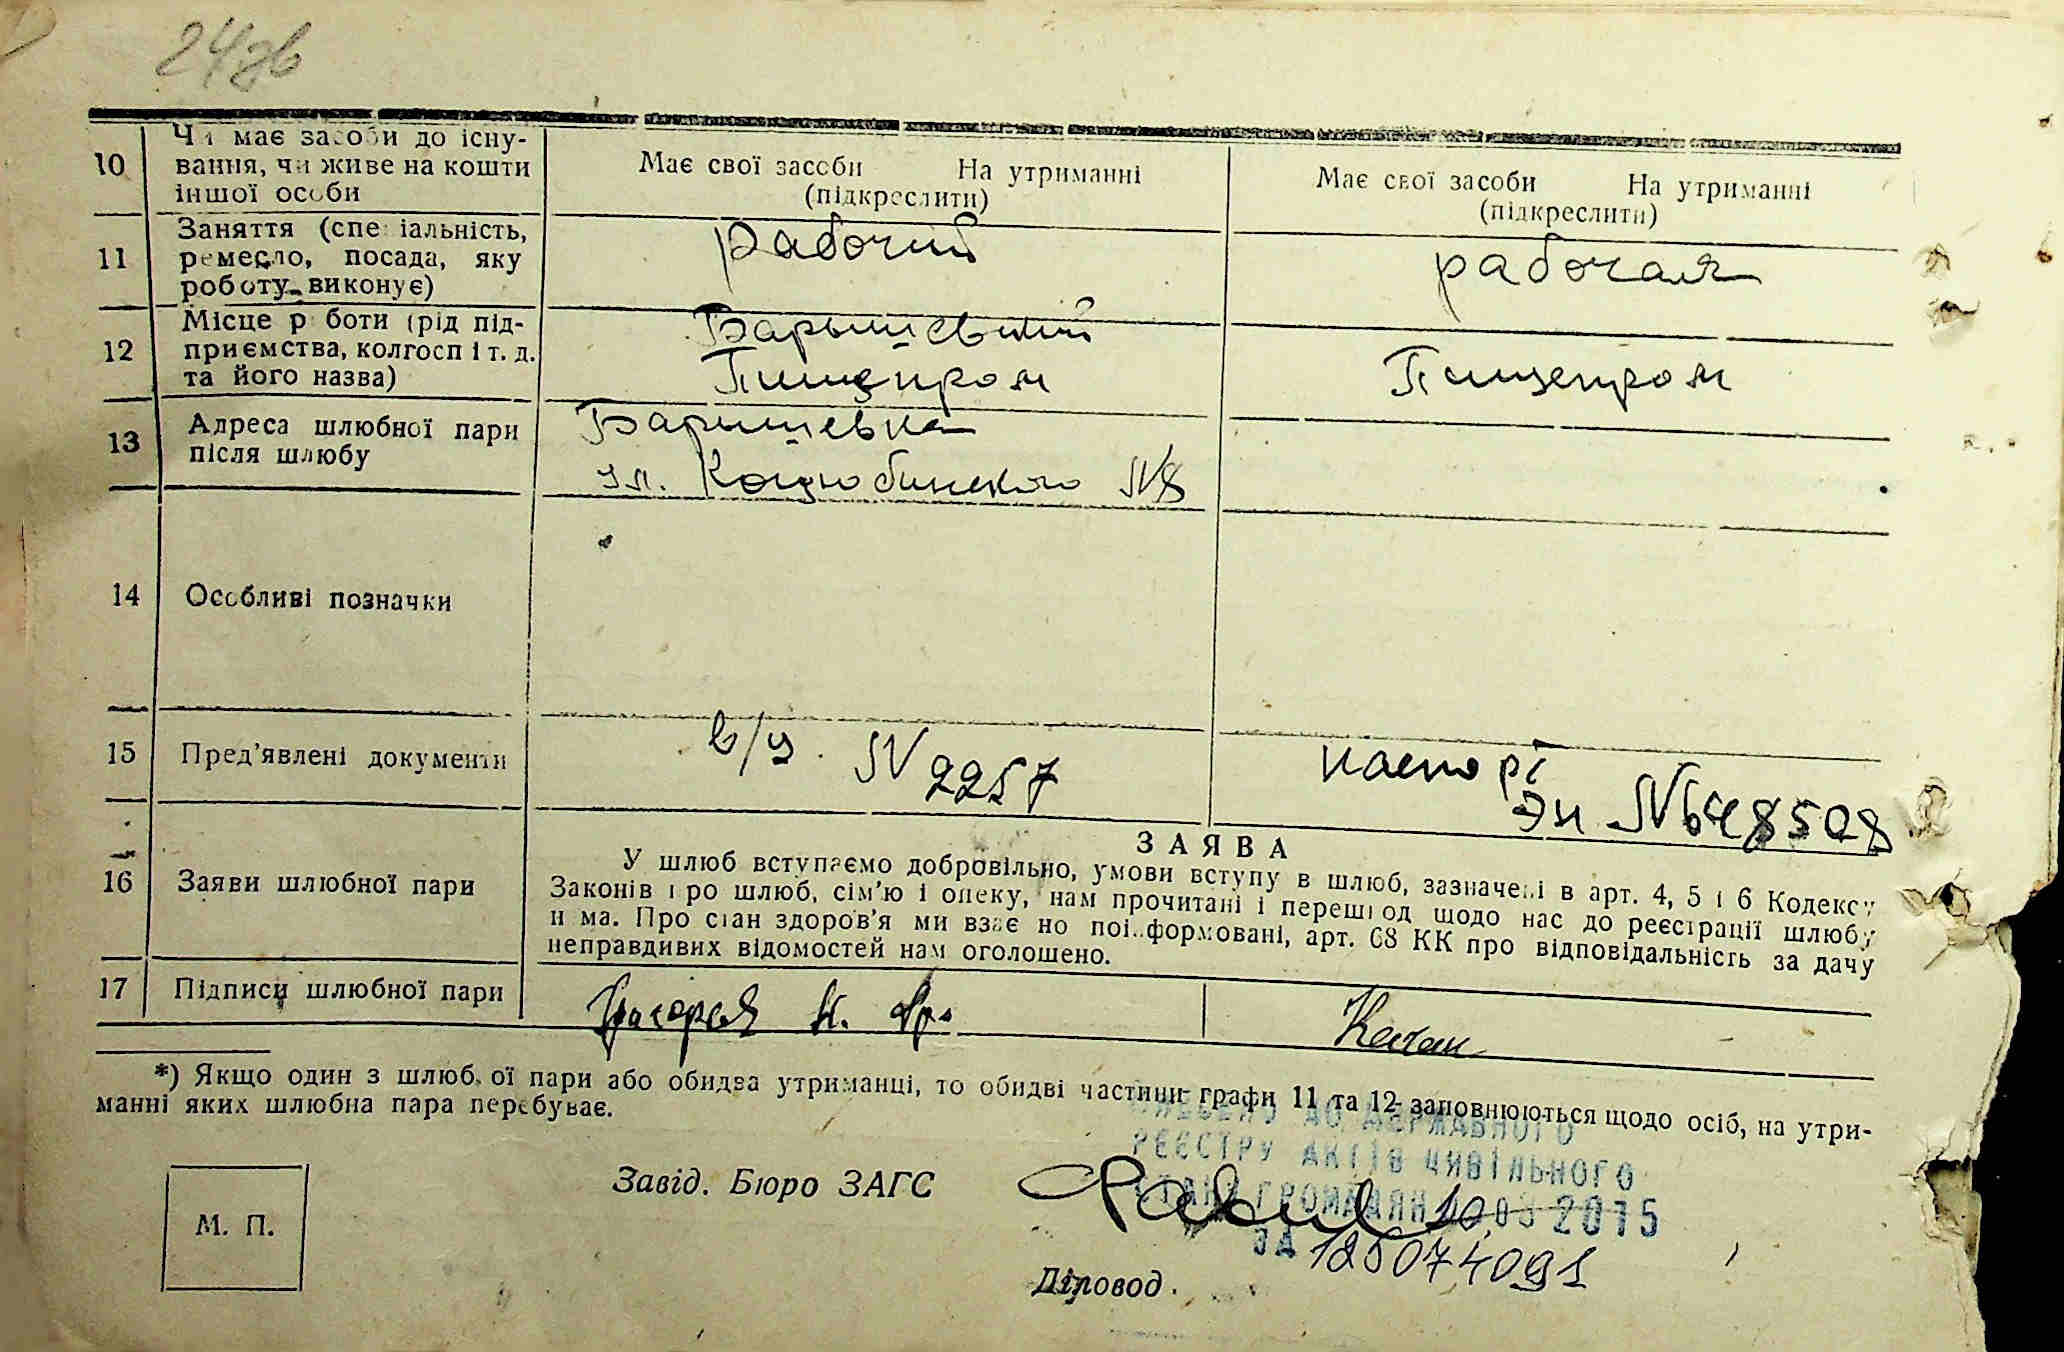 24зв
10
Чи має засоби до існу-
вання, чи живе на кошти
іншої особи
Має свої засоби На утриманні
(підкреслити)
Має свої засоби На утриманні
(підкреслити)
11
Заняття (спеціальність,
ремесло, посада, яку
роботу виконує)
рабочий
рабочая
12
Місце роботи (рід під-
приємства, колгосп і т. д.
та його назва)
Барышевский
Пищепром
Пищепром
13
Адреса шлюбної пари
після шлюбу
Барышевка
ул. Коцюбинского №8
14
Особливі позначки
15
Пред'явлені документи
в/у. № 2257
паспорт
ЭН № 648508
16
Заяви шлюбної пари
ЗАЯВА
У шлюб вступаємо добровільно, умови вступу в шлюб, зазначені в арт. 4, 5 і 6 Кодексу
Законів про шлюб, сім'ю і опеку, нам прочитані і перешкод щодо нас до реєстрації шлюбу
нема. Про стан здоров'я ми взаємно поінформовані, арт. 68 КК про відповідальність за дачу
неправдивих відомостей нам оголошено.
17
Підписи шлюбної пари
*) Якщо один з шлюбної пари або обидва утриманці, то обидві частини графи 11 та 12 заповнюються щодо осіб, на утри-
манні яких шлюбна пара перебуває.
ВНЕСЕНО ДО ДЕРЖАВНОГО
РЕЄСТРУ АКТІВ ЦИВІЛЬНОГО
СТАНУ ГРОМАДЯН 10.03 2015
ЗА
М. П.
Завід. Бюро ЗАГС
Діловод